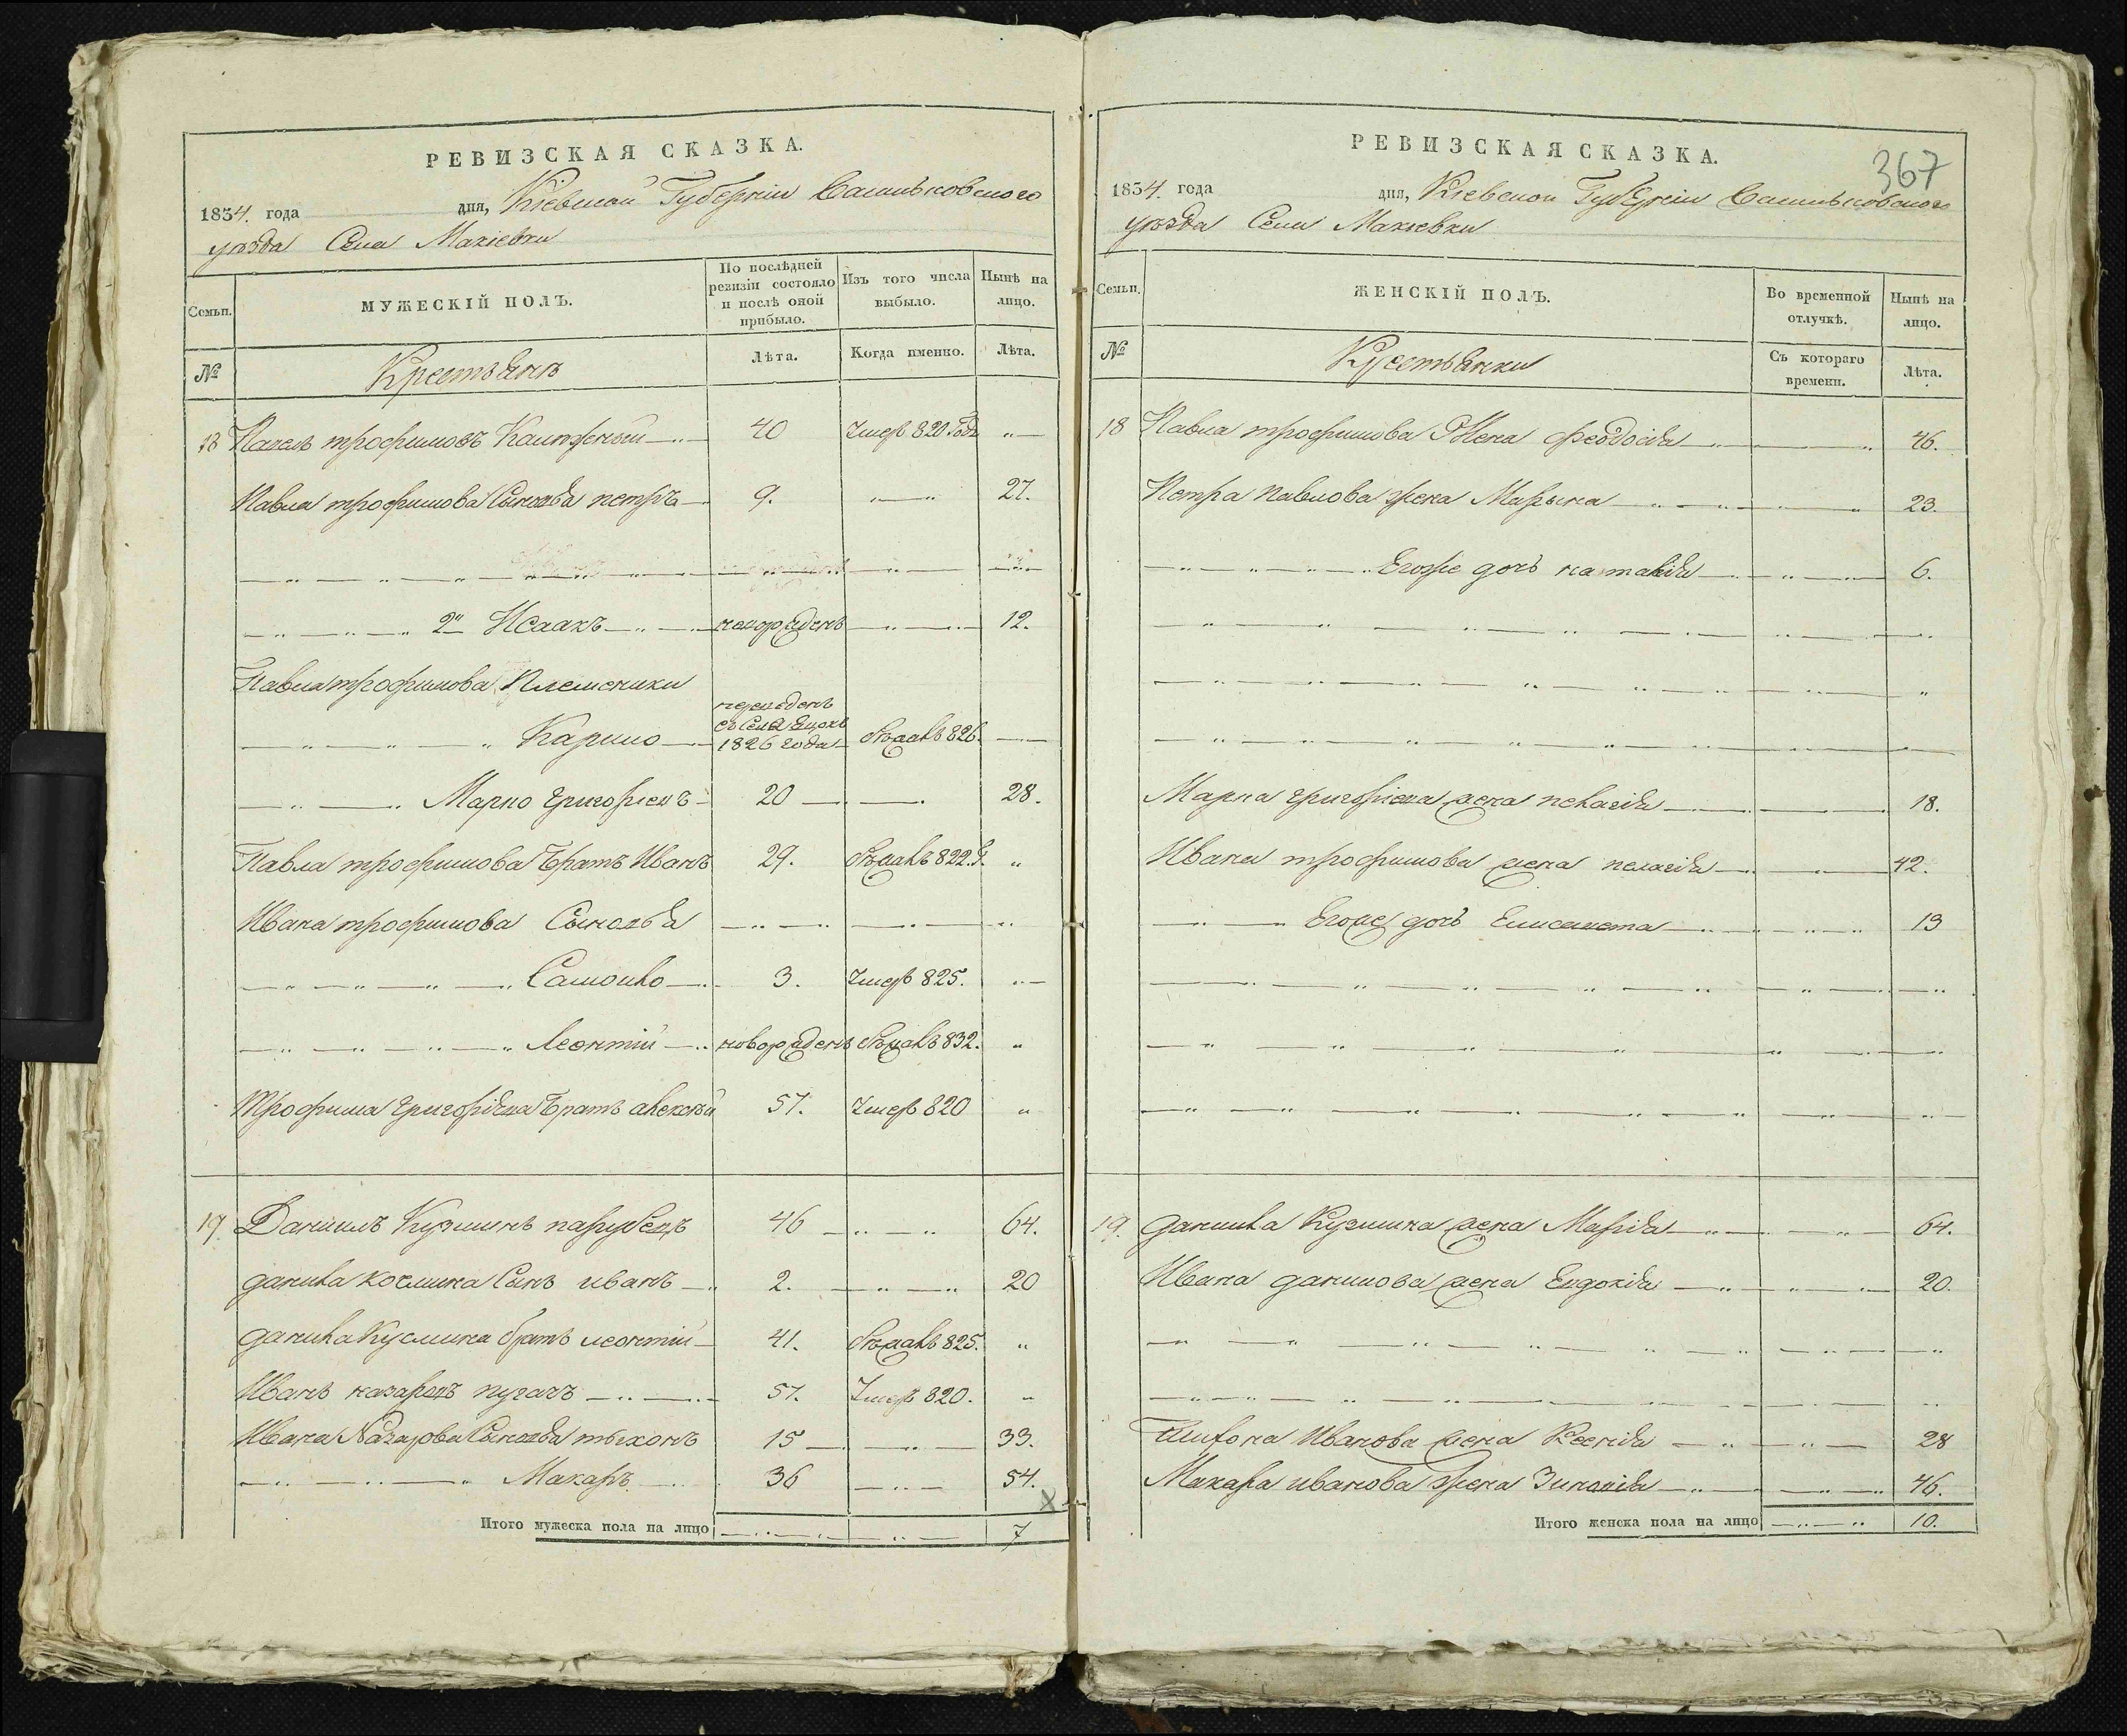 РЕВИЗСКАЯ СКАЗКА.
1834. года дня, Кіевской Губерніи Васильковского
уѣзда Села Макіевки
Семьи.
МУЖЕСКІЙ ПОЛЪ.
По послѣдней ревизіи состояло и послѣ оной прибыло.
Изъ того числа выбыло.
Нынѣ на лицо.
№
Крестьянъ
Лѣта.
Когда именно.
Лѣта.
18 Павелъ трофимовъ 40 Умеръ 820 Года
Павла трофимова Сыновья петръ 9. 27.
2й Исаакъ новорожденъ 12.
Павла трофимова Племеники
Карпо переведенъ съ Села 1826 года Бѣжалъ 826.
Марко григорьевъ 20 28.
Павла трофимова Братъ Иванъ 29. Бѣжалъ 822. г.
Ивана трофимова Сыновья
Самойло 3. Умеръ 825.
Леонтій новорожденъ Бѣжалъ 832.
Трофима григорьева Братъ алексѣй 57. Умеръ 820
19. Данилъ Кузминъ парубецъ 46 64.
данила козмина Сынъ иванъ 2. 20
данила Кузмина братъ леонтій 41. Бѣжалъ 825.
Иванъ назаровъ пугачъ 57. Умеръ 820.
Ивана Назарова Сыновья тихонъ 15 33.
Макаръ 36 54.
Итого мужеска пола на лицо 7
РЕВИЗСКАЯ СКАЗКА.
367
1834. года дня, Кіевской Губерніи Васильковского
уѣзда Села Макіевки
Семьи.
ЖЕНСКІЙ ПОЛЪ.
Во временной отлучкѣ.
Нынѣ на лицо.
№
Крестьянки
Съ котораго времени.
Лѣта.
18 Павла трофимова Жена феодосія 46.
Петра павлова жена Марына 23.
Егоже дочь наталія 6.
Марка григорьева жена пелагія 18.
Ивана трофимова жена пелагія 42.
Егоже дочь Елисавета 13
19. данила Кузмина жена Марія 64.
Ивана данилова жена Евдокія 20.
Тихона Иванова жена Ксенія 28
Макара иванова жена Зиновія 46.
Итого женска пола на лицо 10.